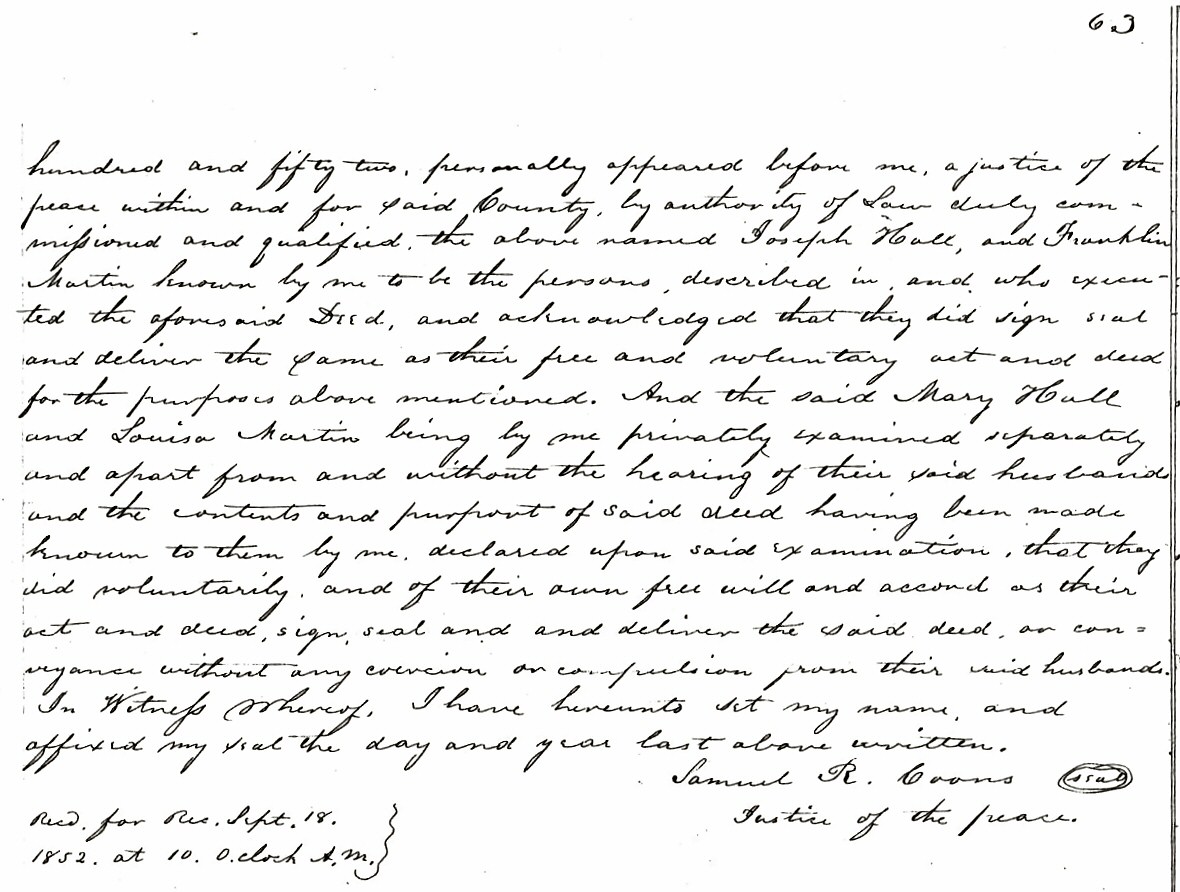 63
hundred and fifty two, personally appeared before me, a justice of the
peace within and for said County, by authority of Law duly com-
missioned and qualified, the above named Joseph Hall, and Franklin
Martin known by me to be the persons, described in, and, who execu-
ted the aforesaid Deed, and acknowledged that they did sign seal
and deliver the same as their free and voluntary act and deed
for the purposes above mentioned. And the said Mary Hall
and Louisa Martin being by me privately examined separately
and apart from and without the hearing of their said husbands
and the contents and purport of said deed having been made
known to them by me, declared upon said examination, that they
did voluntarily, and of their own free will and accord as their
act and deed, sign, seal and and deliver the said deed, or con=
veyance without any coercion or compulsion from their said husbands.
In Witness Whereof, I have hereunto set my name, and
affixed my seal the day and year last above written.
Samuel R. Coons seal
Justice of the peace.
Recd. for Rec. Sept. 18.
1852. at 10. O.clock A.M.